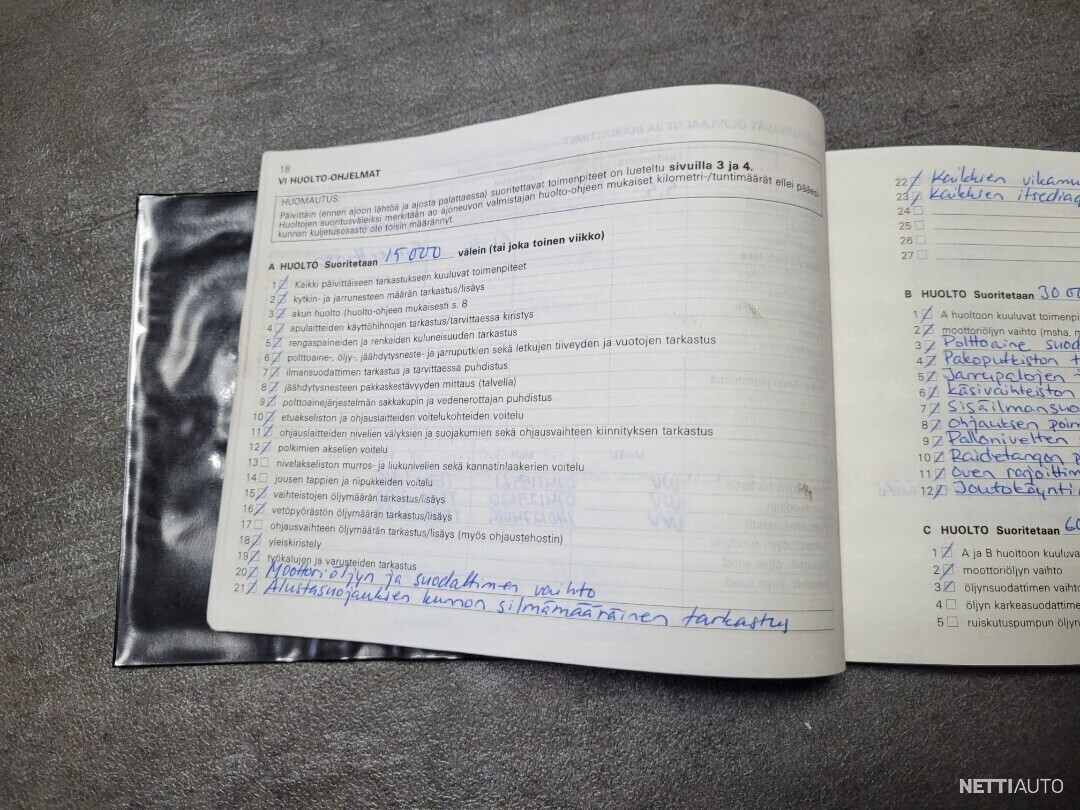 18
VI HUOLTO-OHJELMAT
HUOMAUTUS:
Päivittäin (ennen ajoon lähtöä ja ajosta palattaessa) suoritettavat toimenpiteet on lueteltu sivuilla 3 ja 4.
Huoltojen suoritusväleiksi merkitään ao ajoneuvon valmistajan huolto-ohjeen mukaiset kilometri-/tuntimäärät ellei pääesi-
kunnan kuljetusosasto ole toisin määrännyt
A HUOLTO Suoritetaan 15000 välein (tai joka toinen viikko)
1 Kaikki päivittäiseen tarkastukseen kuuluvat toimenpiteet
2 kytkin- ja jarrunesteen määrän tarkastus/lisäys
3 akun huolto (huolto-ohjeen mukaisesti s. 8
4 apulaitteiden käyttöhihnojen tarkastus/tarvittaessa kiristys
5 rengaspaineiden ja renkaiden kuluneisuuden tarkastus
6 polttoaine-, öljy-, jäähdytysneste- ja jarruputkien sekä letkujen tiiveyden ja vuotojen tarkastus
7 ilmansuodattimen tarkastus ja tarvittaessa puhdistus
8 jäähdytysnesteen pakkaskestävyyden mittaus (talvella)
9 polttoainejärjestelmän sakkakupin ja vedenerottajan puhdistus
10 etuakseliston ja ohjauslaitteiden voitelukohteiden voitelu
11 ohjauslaitteiden nivelien välyksien ja suojakumien sekä ohjausvaihteen kiinnityksen tarkastus
12 polkimien akselien voitelu
13 nivelakseliston murros- ja liukunivelien sekä kannatinlaakerien voitelu
14 jousen tappien ja riipukkeiden voitelu
15 vaihteistojen öljymäärän tarkastus/lisäys
16 vetopyörästön öljymäärän tarkastus/lisäys
17 ohjausvaihteen öljymäärän tarkastus/lisäys (myös ohjaustehostin)
18 yleiskiristely
19 työkalujen ja varusteiden tarkastus
20 Moottoriöljyn ja suodattimen vaihto
21 Alustasuojauksien kunnon silmämääräinen tarkastus
22 Kaikkien
23 Kaikkien
24
25
26
27
B HUOLTO Suoritetaan
1 A huoltoon kuuluvat
2 moottoriöljyn vaihto (msha,
3 Polttoaine
4 Pakoputkiston
5 Jarrupalojen
6 Käsivaihteiston
7
8 Ohjauksen
9 Pallonivelten
10 Raidetangon
11 Oven
12
C HUOLTO Suoritetaan
1 A ja B huoltoon
2 moottoriöljyn vaihto
3 öljynsuodattimen
4 öljyn
5 ruiskutuspumpun
NETTIAUTO